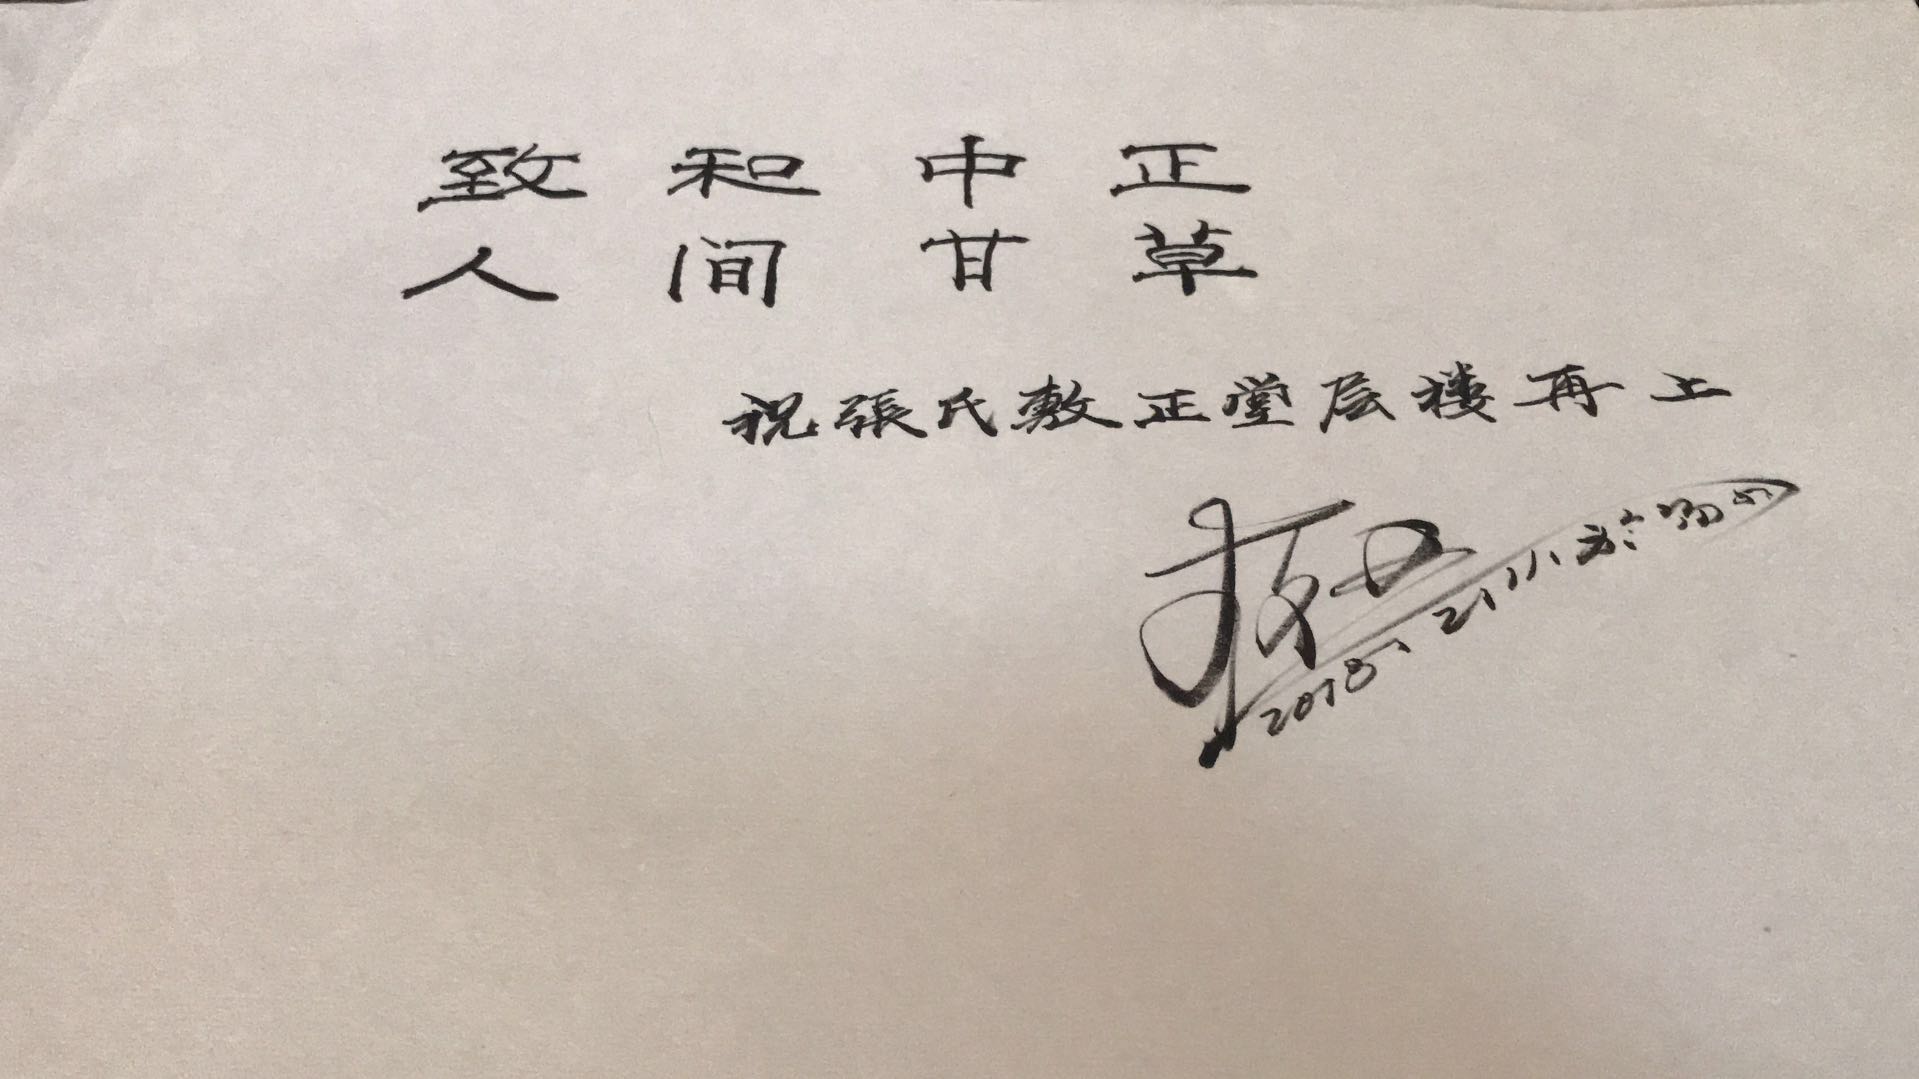 致和中正
人间甘草
祝張氏敷正堂层楼再上
2018、21、八 於